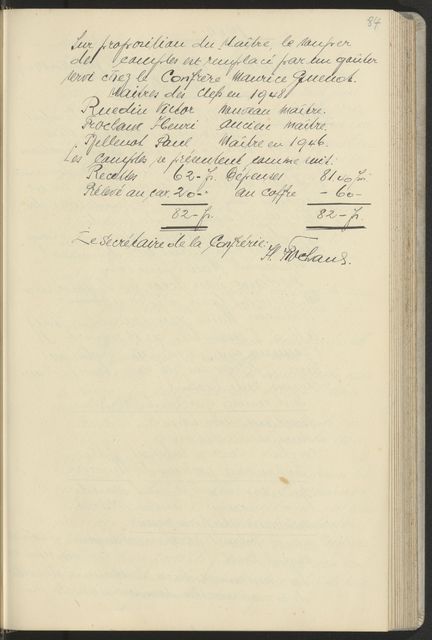 84
Sur proposition du Maître, le souper
des comptes est remplacé par un goûter
servi chez le Confrère Maurice Guenot.
Maitres des clefs en 1948
Ruedin Victor nouveau maître.
Frochaux Henri ancien maître.
Pellenot Paul Maître en 1946.
Les comptes se présentent comme suit:
Recettes 62-fr. Dépenses 81.00 fr.
Relevé au car. 20-- au coffre - 60-
82-fr. 82-fr.
Le secrétaire de la Confrérie:
H. Frochaux.